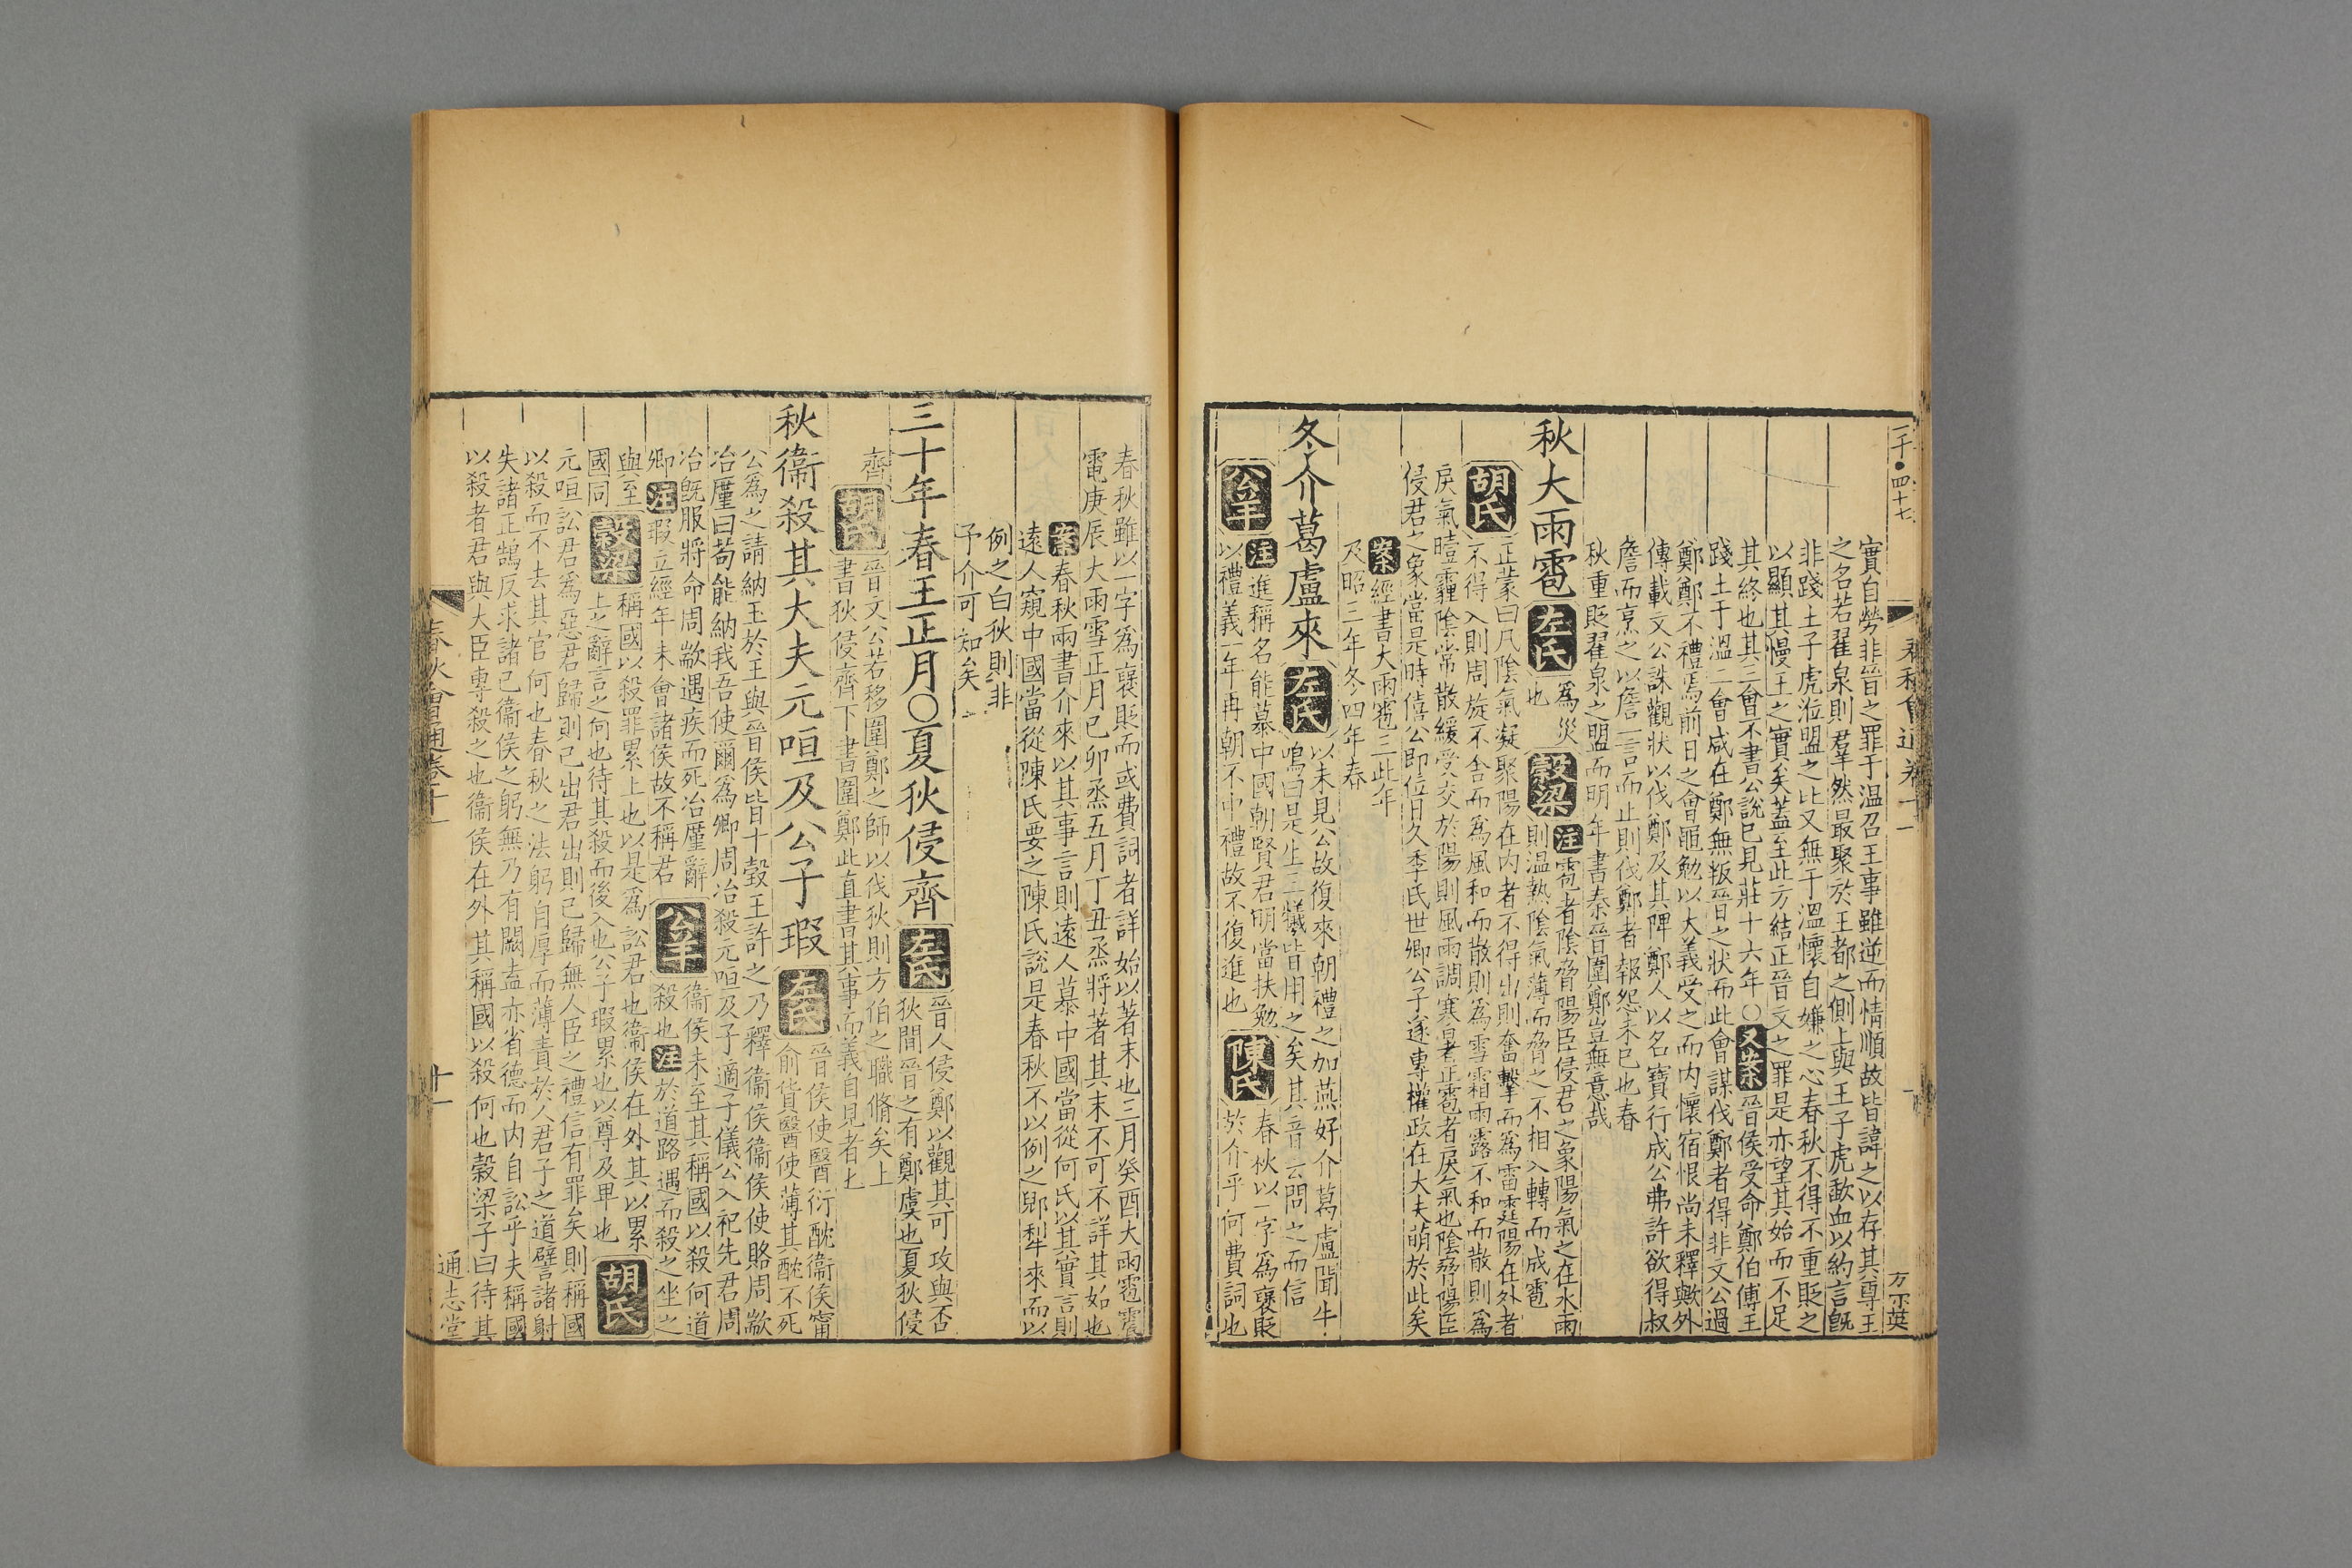 二千〇四十七
春秋會通卷十一
方亦英
實自勞非晉之罪于温召王事雖逆而情順故皆諱之以存其尊王
之名若翟泉則羣然最聚於王都之側上與王子虎歃血以約言旣
非踐土子虎涖盟之比又無于溫懷自嫌之心春秋不得不重貶之
以顯其慢王之實矣蓋至此方結正晉文之罪是亦望其始而不足
其終也其三會不書公說已見莊十六年〇又案晉侯受命鄭伯傅王
踐土于溫二會咸在鄭無叛晉之狀而此會謀伐鄭者得非文公過
鄭鄭不禮焉前日之會黽勉以大義受之而内懷宿恨尚未釋歟外
傳載文公誅觀狀以伐鄭及其陴鄭人以名寶行成公弗許欲得叔
詹而烹之以詹一言而止則伐鄭者報怨未已也春
秋重貶翟泉之盟而明年書秦晉圍鄭豈無意哉
秋大雨雹 左氏 爲災也 穀梁 注 雹者陰脅陽臣侵君之象陽氣之在水雨
則温熱陰氣薄而脅之不相入轉而成雹
胡氏 正蒙曰凡陰氣凝聚陽在内者不得出則奮擊而爲雷霆陽在外者
不得入則周旋不舍而爲風和而散則爲雪霜雨露不和而散則爲
戾氣曀霾陰常散緩受交於陽則風雨調寒暑正雹者戾氣也陰脅陽臣
侵君之象當是時僖公即位日久季氏世卿公子遂專權政在大夫萌於此矣
案 經書大雨雹三此年
及昭三年冬四年春
冬介葛盧來 左氏 以未見公故復來朝禮之加燕好介葛盧聞牛
鳴曰是生三犧皆用之矣其音云問之而信
公羊 注 進稱名能慕中國朝賢君明當扶勉
以禮義一年再朝不中禮故不復進也
陳氏 春秋以一字爲襃貶
於介乎何費詞也
春秋雖以一字爲襃貶而或費詞者詳始以著末也三月癸酉大雨雹震
電庚辰大雨雪正月已卯烝五月丁丑烝將著其末不可不詳其始也
案 春秋兩書介來以其事言則遠人慕中國當從何氏以其實言則
遠人窺中國當從陳氏要之陳氏說是春秋不以例之郳犂來而以
例之白狄則非
予介可知矣
三十年春王正月〇夏狄侵齊 左氏 晉人侵鄭以觀其可攻與否
狄間晉之有鄭虞也夏狄侵
齊 胡氏 晉文公若移圍鄭之師以伐狄則方伯之職脩矣上
書狄侵齊下書圍鄭此直書其事而義自見者也
秋衞殺其大夫元咺及公子瑕 左氏 晉侯使醫衍酖衞侯甯
俞貨醫使薄其酖不死
公爲之請納玉於王與晉侯皆十瑴王許之乃釋衞侯衞侯使賂周歂
冶廑曰苟能納我吾使爾爲卿周冶殺元咺及子適子儀公入祀先君周
冶旣服將命周歂遇疾而死冶廑辭
卿 注 瑕立經年未會諸侯故不稱君 公羊 衞侯未至其稱國以殺何道
殺也 注 於道路遇而殺之坐之
與至
國同 穀梁 稱國以殺罪累上也以是爲訟君也衞侯在外其以累
上之辭言之何也待其殺而後入也公子瑕累也以尊及卑也 胡氏
元咺訟君爲惡君歸則已出君出則已歸無人臣之禮信有罪矣則稱國
以殺而不去其官何也春秋之法躬自厚而薄責於人君子之道譬諸射
失諸正鵠反求諸己衞侯之躬無乃有闕盍亦省德而内自訟乎夫稱國
以殺者君與大臣專殺之也衞侯在外其稱國以殺何也穀梁子曰待其
春秋會通卷十一
十一
通志堂